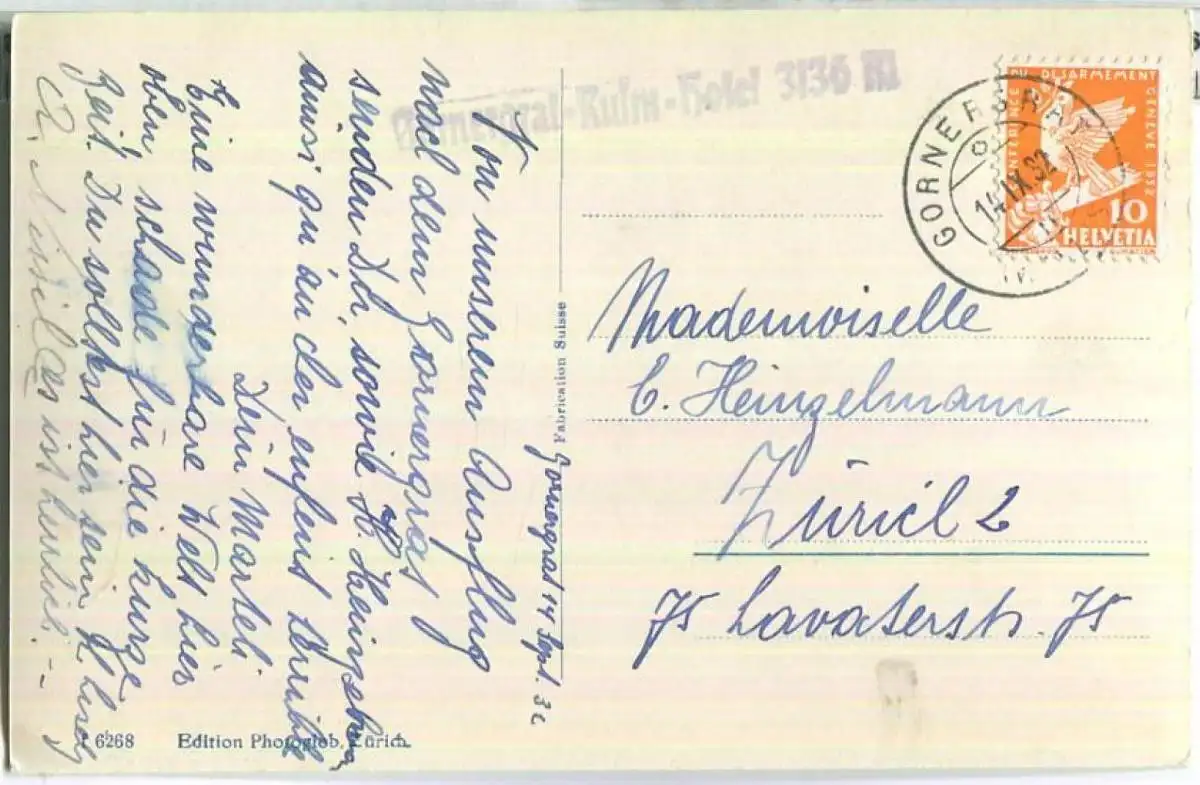 Gornergrat-Kulm-Hotel 3136 M
GORNERGRAT
14.IX.32
CONFERENCE DU DESARMEMENT GENEVE 1932
10
HELVETIA
Mademoiselle
C. Heinzelmann
Zürich 2
75 Lavaterstr. 75
Gornergrat 14 Sept. 32
Von unserem Ausflug
nach dem Gornergrat
senden Dir, sowie H.
amsi qu'an cher enfant terrible
Dein Marteli
Eine wunderbare Welt hier
oben, schade für die kurze
Zeit. Du solltest hier sein
es ist herrlich. --
Fabrication Suisse
6268 Edition Photoglob, Zürich.